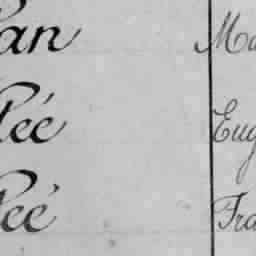 an Ma
lée Eug
lée Fra